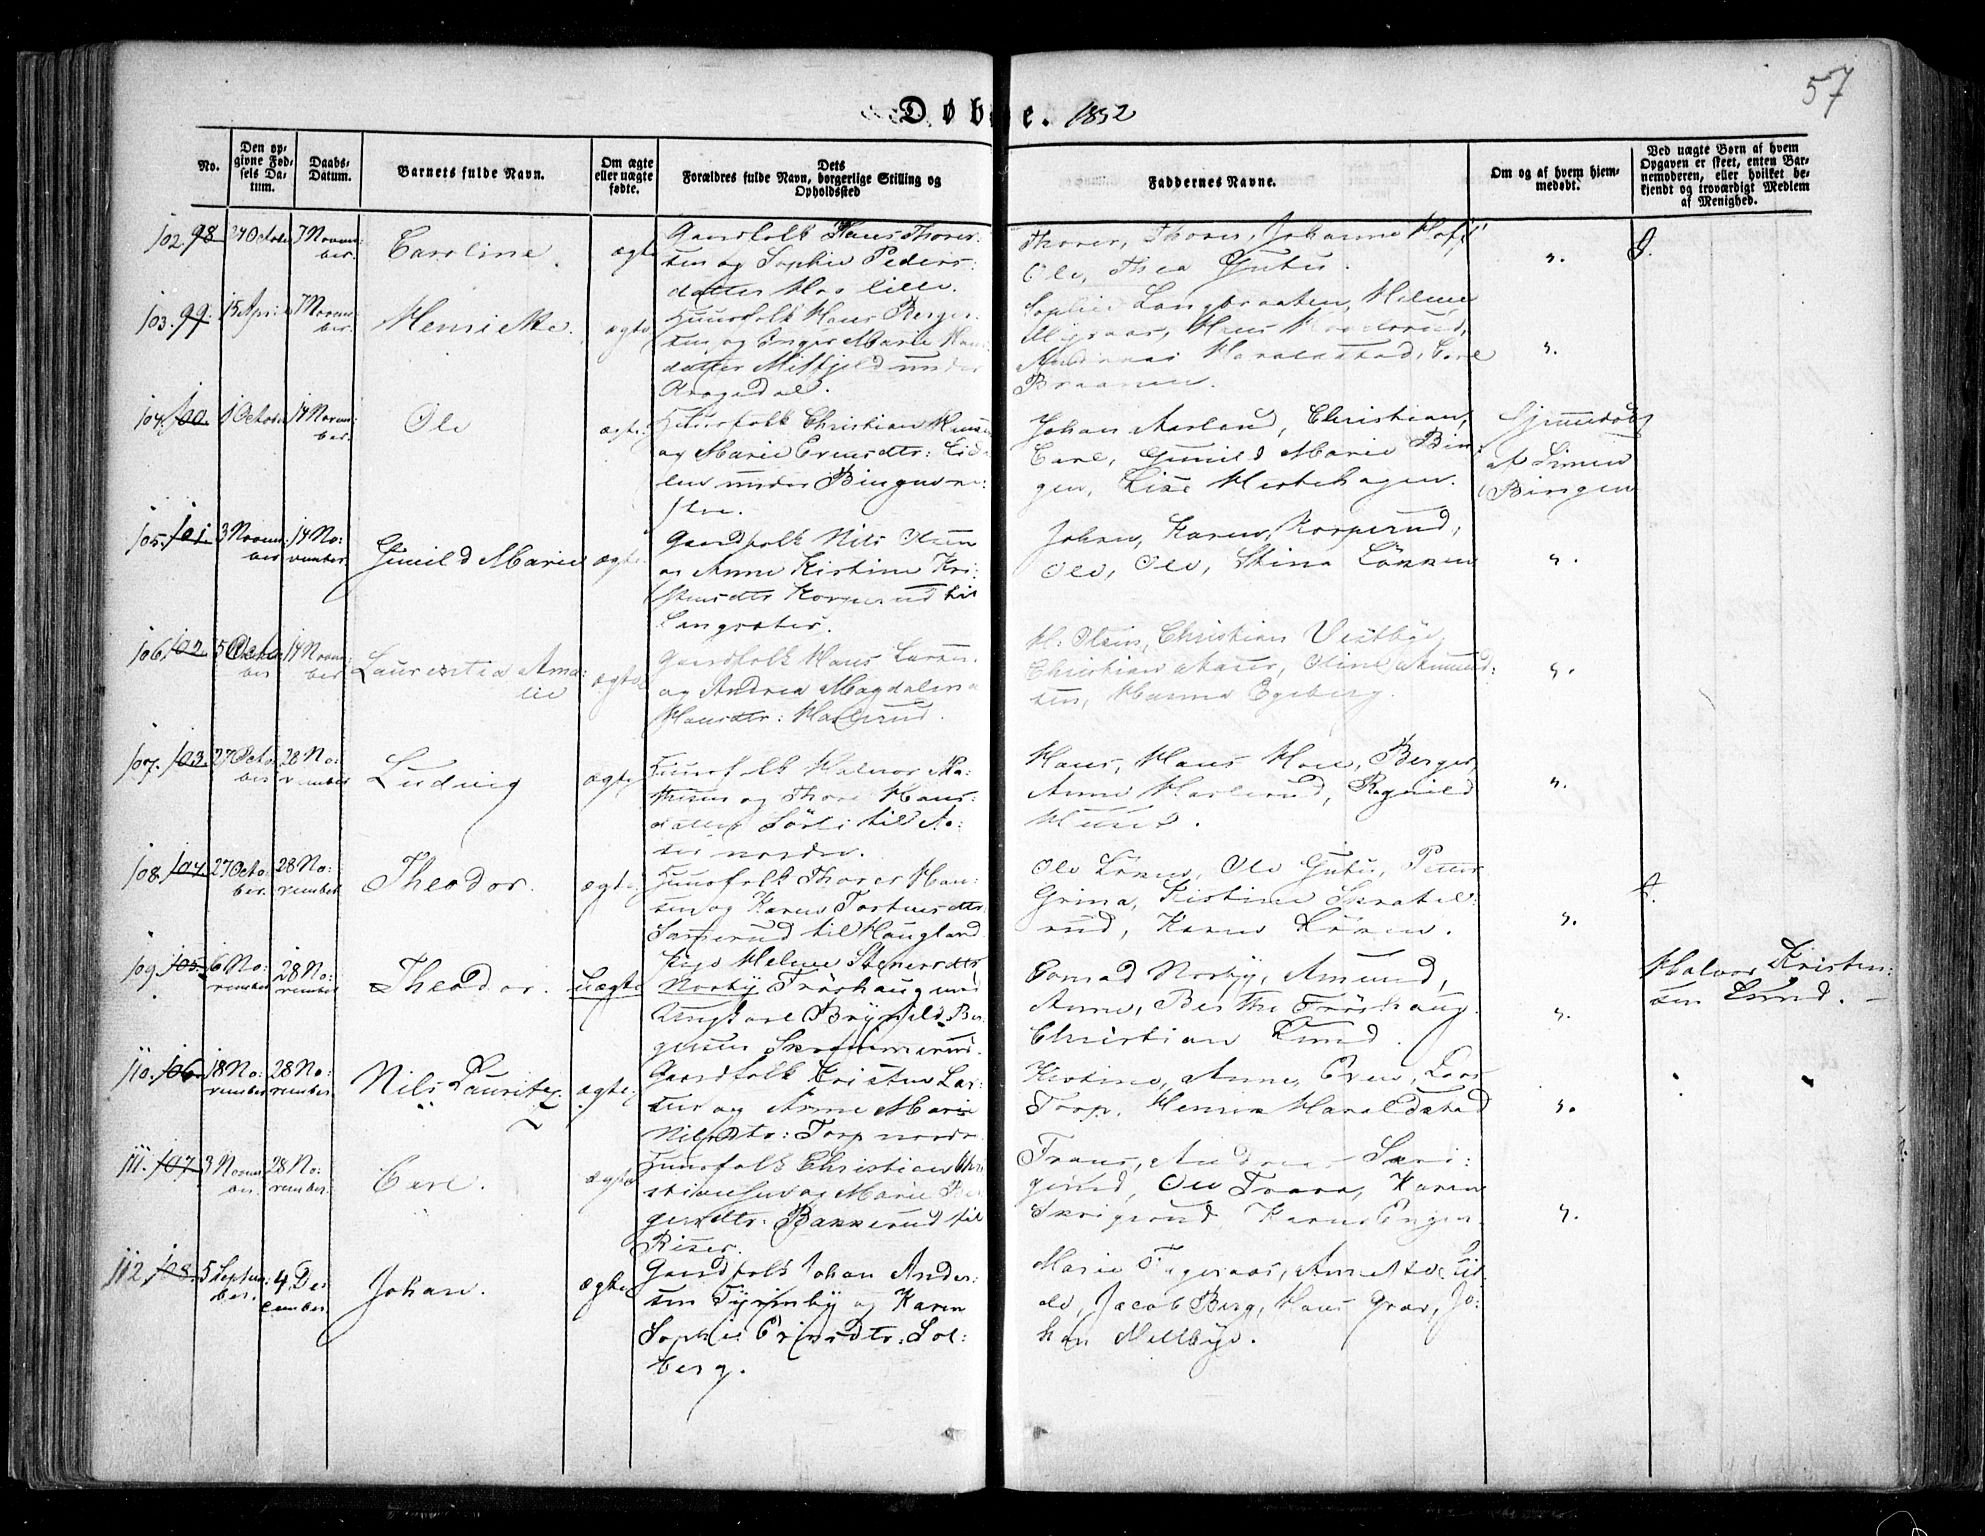 57
Døbte. 1852
No.
Den opgivne Fødsels Datum.
Daabs-Datum.
Barnets fulde Navn.
Om ægte eller uægte fødte.
Dets Forældres fulde Navn, borgerlige Stilling og Opholdssted
Faddernes Navne.
Om og af hvem hjemmedøbt.
Ved uægte Børn af hvem Opgaven er skeet, enten Barnemoderen, eller hvilket bekjendt og troværdigt Medlem af Menighed.
102. 98. 7 Novem:
ber.
Caroline.
ægte
Gaardfolk Hans Thorer:
sen og Sophie Peders:
datter Moe lille.
Thorer, Thorer, Johanne
Ole, Thea Gutu.
103. 99. 15 April 7 Novem
ber.
Henrikke.
ægte
Huusfolk Hans Berger:
sen og Inger Marie Hans
datter under
Sophie Langbraaten, Helene
Hans
Andreas Haraldstad, Carl
Braanen.
104. 100. 1 October 14 Novem
ber.
Ole
ægte
Huusfolk Christian Hansen
og Marie Evensdtr:
len under Bingen
Johan Aasland, Christian,
Carl, Gunild Marie Bin
gen, Lise Hestehagen.
Hjemmedøbt
af Simen
Bingen
105. 101. 3 Novem
ber
14 No:
vember
Gunild Marie
ægte
Gaardfolk Nils Olsen
og Anne Kistine Kri:
stensdtr Korperud til
Langsæter.
Johan, Karen, Korperud,
Ole, Ole, Stina Løkken
106. 102. 5 October
14 Novem
ber
Laurentia Ama:
lie
ægte
Gaardfolk Hans Larsen
og Andrea Magdalena
Hansdtr: Haslerud.
H. Olsen, Christian Vestbye
Christian Aaser, Oline Amund:
sen, Hanna Egeberg.
107. 103. 27 Octo
ber
28 No:
vember
Ludvig
ægte
Huusfolk Halvor Ma:
thisen og Thore Hans:
datter Sørli til Aa:
ser nordre.
Hans, Hans Moe, Berger,
Anne Haslerud, Ragnild
108. 104. 27 Octo:
ber.
28 No:
vember
Theodor.
ægte
Huusfolk Thorer Han:
sen og Karen Torstensdtr
til Haugland
Ole Løken, Ole Gutu, Petter
Grina, Kistine Skratel:
rud, Karen Løken.
109. 105. 6 No:
vember
28 No:
vember
Theodor.
Uægte
Pige Helene Stenersdtr
Norby Frøshaug med
Ungkarl Brynild Ber:
gersen Skrammerud.
Conrad Norby, Amund,
Anne, Berthe Frøshaug.
Christian Lund.
Halvor Kristen:
sen Lund.
110. 106. 18 No:
vember
28 No:
vember.
Nils Lauritz
ægte
Gaardfolk Kristen Lar:
sen og Anne Marie
Nilsdtr: Torp nordre
Kistine, Anne, Even, Lars
Torp, Henrik Haraldstad
111. 107. 3 Novem
ber.
28 No:
vember.
Carl.
ægte
Huusfolk Christian Chri
stiansen og Marie Ber
gersdtr: Bakkerud til
Riser.
Frans, Andreas Skri:
gerud, Ole Trara, Karen
Skrigerud, Karen Enger.
112. 108. 5 Septem:
ber.
4 De:
cember.
Johan.
ægte
Gaardfolk Johan Ander:
sen Tyrimby og Karen
Sophie Eriksdtr: Sol:
berg.
Marie
Jacob Berg, Hans Grav, Jo:
han Mellbye.